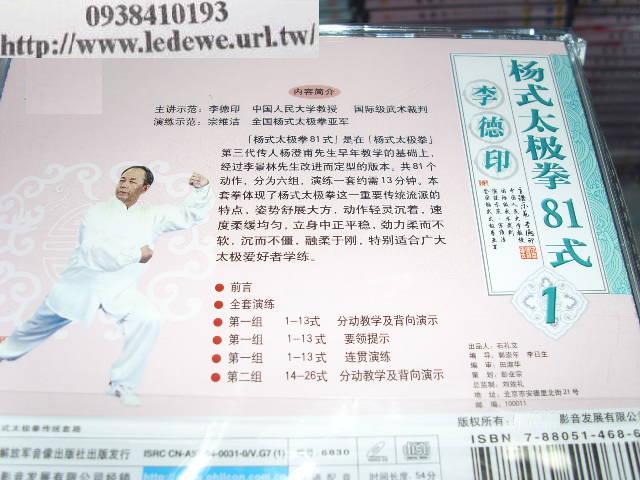 0938410193
http://www.ledewe.url.tw/
内容简介
主讲示范: 李德印 中国人民大学教授 国际级武术裁判
演练示范: 宗维洁 全国杨式太极拳亚军
「杨式太极拳81式」是在「杨式太极拳」
第三代传人杨澄甫先生早年教学的基础上,
经过李景林先生改进而定型的版本。共81个
动作,分为六组,演练一套约需13分钟。本
套拳体现了杨式太极拳这一重要传统流派的
特点,姿势舒展大方,动作轻灵沉着,速
度柔缓均匀,立身中正平稳,劲力柔而不
软,沉而不僵,融柔于刚,特别适合广大
太极爱好者学练。
前言
全套演练
第一组 1-13式 分动教学及背向演示
第一组 1-13式 要领提示
第一组 1-13式 连贯演练
第二组 14-26式 分动教学及背向演示
杨式太极拳81式
李德印
1
出品人: 石礼文
编导: 郭崇年 李日生
编审: 田淑华
策划: 彭业宗
总监制: 刘效礼
地址: 北京市安德里北街21号
邮编: 100011
式太极拳传统套路
解放军音像出版社出版发行
ISRC CN-A 0031-0/V.G7 (1)
编号: 6830
影音发展有限公司
ISBN 7-88051-468-6
影音发展有限公司经销
时间长度: 54分